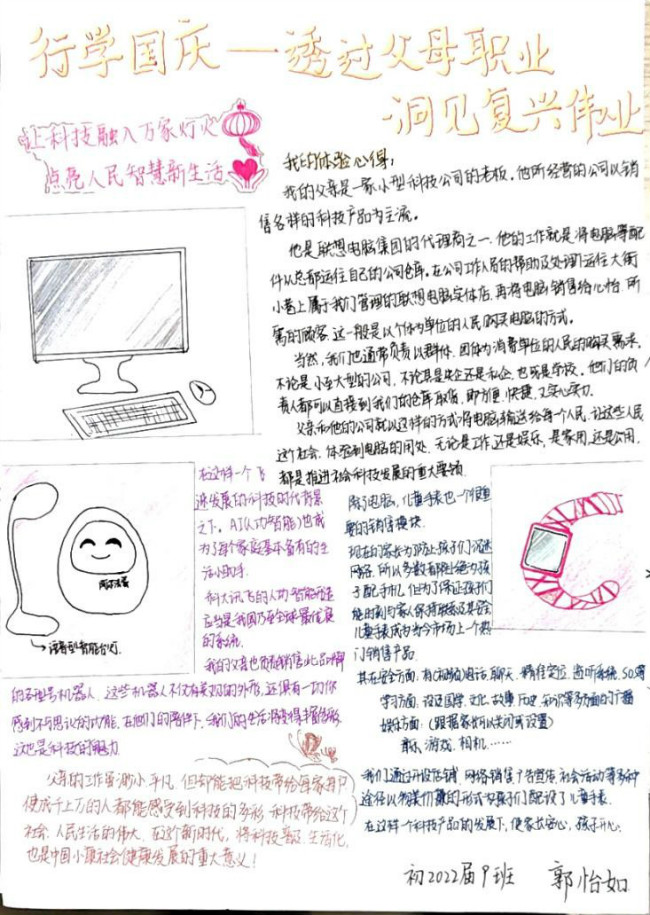 行学国庆——透过父母职业
洞见复兴伟业
让科技融入万家灯火
点亮人民智慧新生活
我的体验心得：
我的父亲是一家小型科技公司的老板。他所经营的公司以销
售各样的科技产品为主流。
他是联想电脑集团的代理商之一，他的工作就是将电脑等配
件从总部运往自己的公司仓库。在公司工作人员的帮助及处理下运往大街
小巷上属于我们管理的联想电脑实体店，再将电脑销售给心怡、所
需的顾客。这一般是以个体为单位的人民购买电脑的方式。
当然，我们也通常负责以群体、团体为消费单位的人民的购买需求。
不论是小至大型的公司，不论其是央企还是私企，也或是学校。他们的负
责人都可以直接到我们的仓库取货，即方便、快捷、又实心实力。
父亲和他的公司就以这样的方式将电脑输送给每个人民，让这些人民
这个社会，体验到电脑的用处，无论是工作还是娱乐，是家用，还是公用，
都是推进社会科技发展的重大要领
在这样一个飞
速发展的科技时代背景
之下，AI(人工智能)也成
为了每个家庭基本备有的生
活小助手。
科大讯飞的人工智能
应当是我国乃至全球最优良
的系统。
我的父亲也负责销售此品牌
的各种型号机器人，这些机器人不仅有美观的外形，还俱有一切你
感到不可思议的功能，在他们的陪伴下，我们的生活将变得丰富多彩
这也是科技的魅力
阿尔法蛋
除了电脑，儿童手表也一个很重
要的销售模块。
现在的家长为了防止孩子们沉迷
网络，所以多数都拒绝为孩
子配手机，但为了保证孩子们
能时刻与家人保持联系及其安全
儿童手表成为当今市场上一个热
门销售产品。
其在安全方面，有(视频)电话、聊天、精准定位、监听系统、SOS等
学习方面，设还国学、文化、故事、历史、知识等多方面的广播
娱乐方面：(跟据家长可以关闭或设置)
音乐、游戏、相机……
我们通过开设店铺，网络销售，广告宣传，社会活动等多种
途径以物美价廉的形式为孩子们配设了儿童手表。
在这样一个科技产品的发展下，使家长安心，孩子开心。
父亲的工作虽渺小、平凡，但却能把科技带给每家每户
使成千上万的人都能感受到科技的多彩，科技带给这个
社会、人民生活的伟大，在这个新时代，将科技普及、生活化，
也是中国小康社会健康发展的重大意义！
初2022届9班 郭怡如